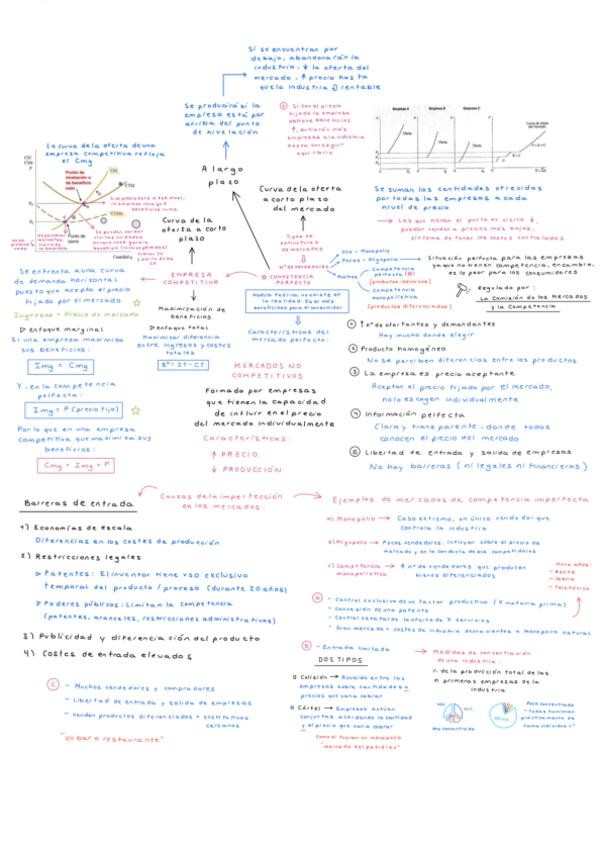 Si se encuentran por
debajo, abandonarán la
industria. ↓ la oferta del
mercado. ↑ precio hasta
que la industria
rentable
Se producirá si la
empresa está por
arriba del punto
de nivelación
Si con el precio
fijado la empresa
obtiene beneficios
↑, entrarán más
empresas a la industria
hasta conseguir
equilibrio
La curva de la oferta de una
empresa competitiva refleja
el Cmg
A largo
plazo
Curva de la oferta
a corto plazo
del mercado
Curva de la
oferta a corto
plazo
Empresa A
Empresa B
Empresa C
Se suman las cantidades ofrecidas
por todas las empresas a cada
nivel de precio
→ Las que tienen el punto de cierre ↓,
pueden vender a precios más bajos,
síntoma de tener los costes controlados
Tipos de
estructura de
mercados
Nº de vendedores
Uno - Monopolio
Pocos - Oligopolio
Muchos
Competencia
perfecta
(productos idénticos)
Competencia
monopolística
(productos diferenciados)
Situación perfecta para las empresas
ya que no tienen competencia, en cambio,
es lo peor para los consumidores
Regulado por:
La Comisión de los Mercados
y la Competencia
EMPRESA
COMPETITIVA
☆ COMPETENCIA
PERFECTA
Modelo teórico, no existe en
la realidad. Es el más
beneficioso para el consumidor
Características del
mercado perfecto:
Se enfrenta a una curva
de demanda horizontal
puesto que acepta el precio
fijado por el mercado
Ingresos = Precio de mercado
▷ Enfoque marginal
Si una empresa maximiza
sus beneficios:
Img = Cmg
Y, en la competencia
perfecta:
Img = P (precio fijo)
Por lo que en una empresa
competitiva que maximiza sus
beneficios:
Cmg = Img = P
Maximización de
beneficios
▷ Enfoque total
Maximizar diferencia
entre ingresos y costes
totales
Bº = IT - CT
MERCADOS NO
COMPETITIVOS
Formado por empresas
que tienen la capacidad
de influir en el precio
del mercado individualmente
Características:
↑ PRECIO
↓ PRODUCCIÓN
① ↑ nº de ofertantes y demandantes
Hay mucho donde elegir
② Producto homogéneo
No se perciben diferencias entre los productos
③ La empresa es precio aceptante
Aceptan el precio fijado por el mercado,
no lo escogen individualmente
④ Información perfecta
Clara y transparente, donde todos
conocen el precio del mercado
⑤ Libertad de entrada y salida de empresas
No hay barreras (ni legales ni financieras)
Causas de la imperfección
en los mercados:
Barreras de entrada
1) Economías de escala
Diferencias en los costes de producción
2) Restricciones legales
▷ Patentes: El inventor tiene uso exclusivo
temporal del producto / proceso (durante 20 años)
▷ Poderes públicos: Limitan la competencia
(patentes, aranceles, restricciones administrativas)
3) Publicidad y diferenciación del producto
4) Costes de entrada elevados
Ejemplos de mercados de competencia imperfecta
a) Monopolio → Caso extremo, un único vendedor que
controla la industria
b) Oligopolio → Pocos vendedores. Influyen sobre el precio de
mercado y en la conducta de sus competidores
c) Competencia
monopolística
→ ↑ nº de vendedores que producen
bienes diferenciados
Hace años:
- Renfe
- Iberia
- Telefónica
ⓐ - Control exclusivo de un factor productivo (∨ materia prima)
- Concesión de una patente
- Control estatal de la oferta de ∨ servicios
- Gran mercado + costes de industria decrecientes → Monopolio natural
ⓑ - Entrada limitada
DOS TIPOS
Colisión → Acuerdo entre las
empresas sobre cantidades o
precios que van a cobrar
Cártel → Empresas actúan
conjuntas acordando la cantidad
y el precio que van a cobrar
Como si fueran un monopolio
"mercado
→ Medidas de concentración
de una industria:
% de la producción total de las
n primeras empresas de la
industria
Muy concentrada
Poco concentrada
ⓒ - Muchos vendedores y compradores
- Libertad de entrada y salida de empresas
- Venden productos diferenciados = sustitutivos
cercanos
"Un bar o restaurante"